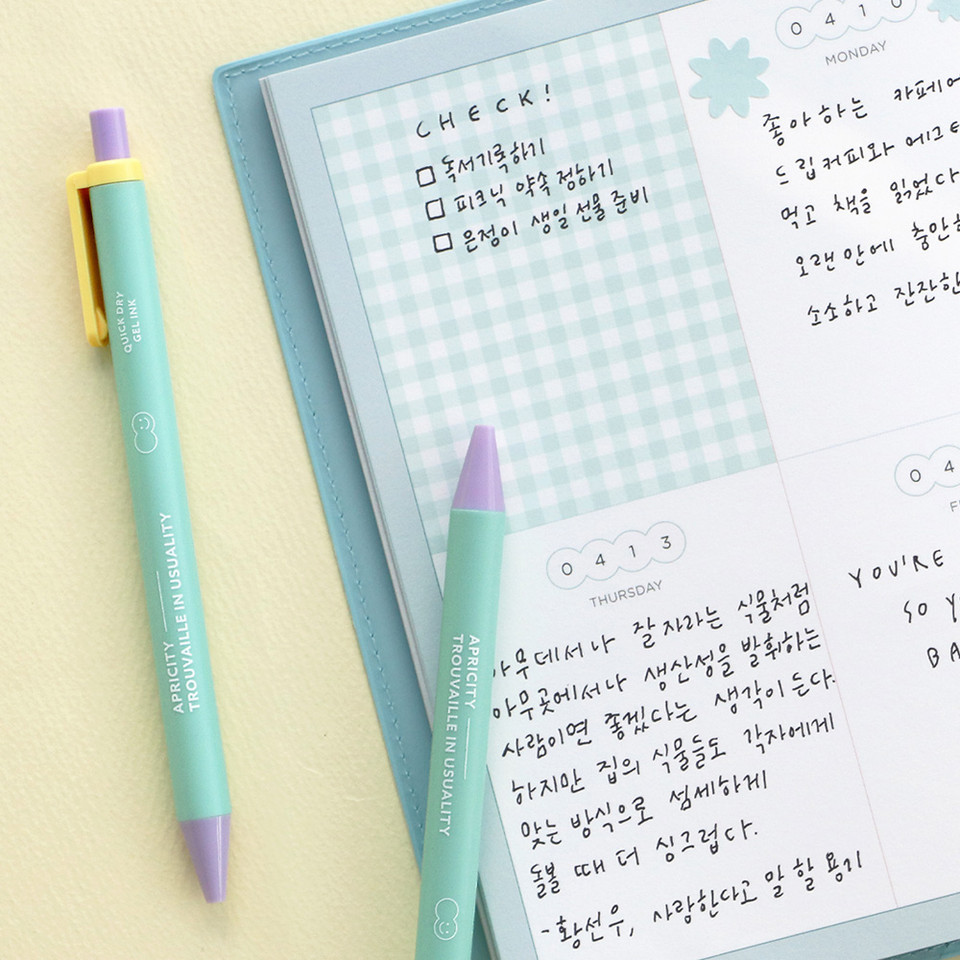 QUICK DRY
GEL INK
APRICITY
TROUVAILLE IN USUALITY
CHECK!
독서기록하기
피크닉 약속 정하기
은정이 생일 선물 준비
0410
MONDAY
좋아하는
드립커피와
먹고 책을 읽었다
오랜만에
소소하고 잔잔한
0413
THURSDAY
아무데서나 잘 자라는 식물처럼
아무곳에서나 생산성을 발휘하는
사람이면 좋겠다는 생각이 든다.
하지만 집의 식물들도 각자에게
맞는 방식으로 섬세하게
돌볼 때 더 싱그럽다.
-황선우, 사랑한다고 말할 용기
04
YOU'RE
SO
APRICITY
TROUVAILLE IN USUALITY